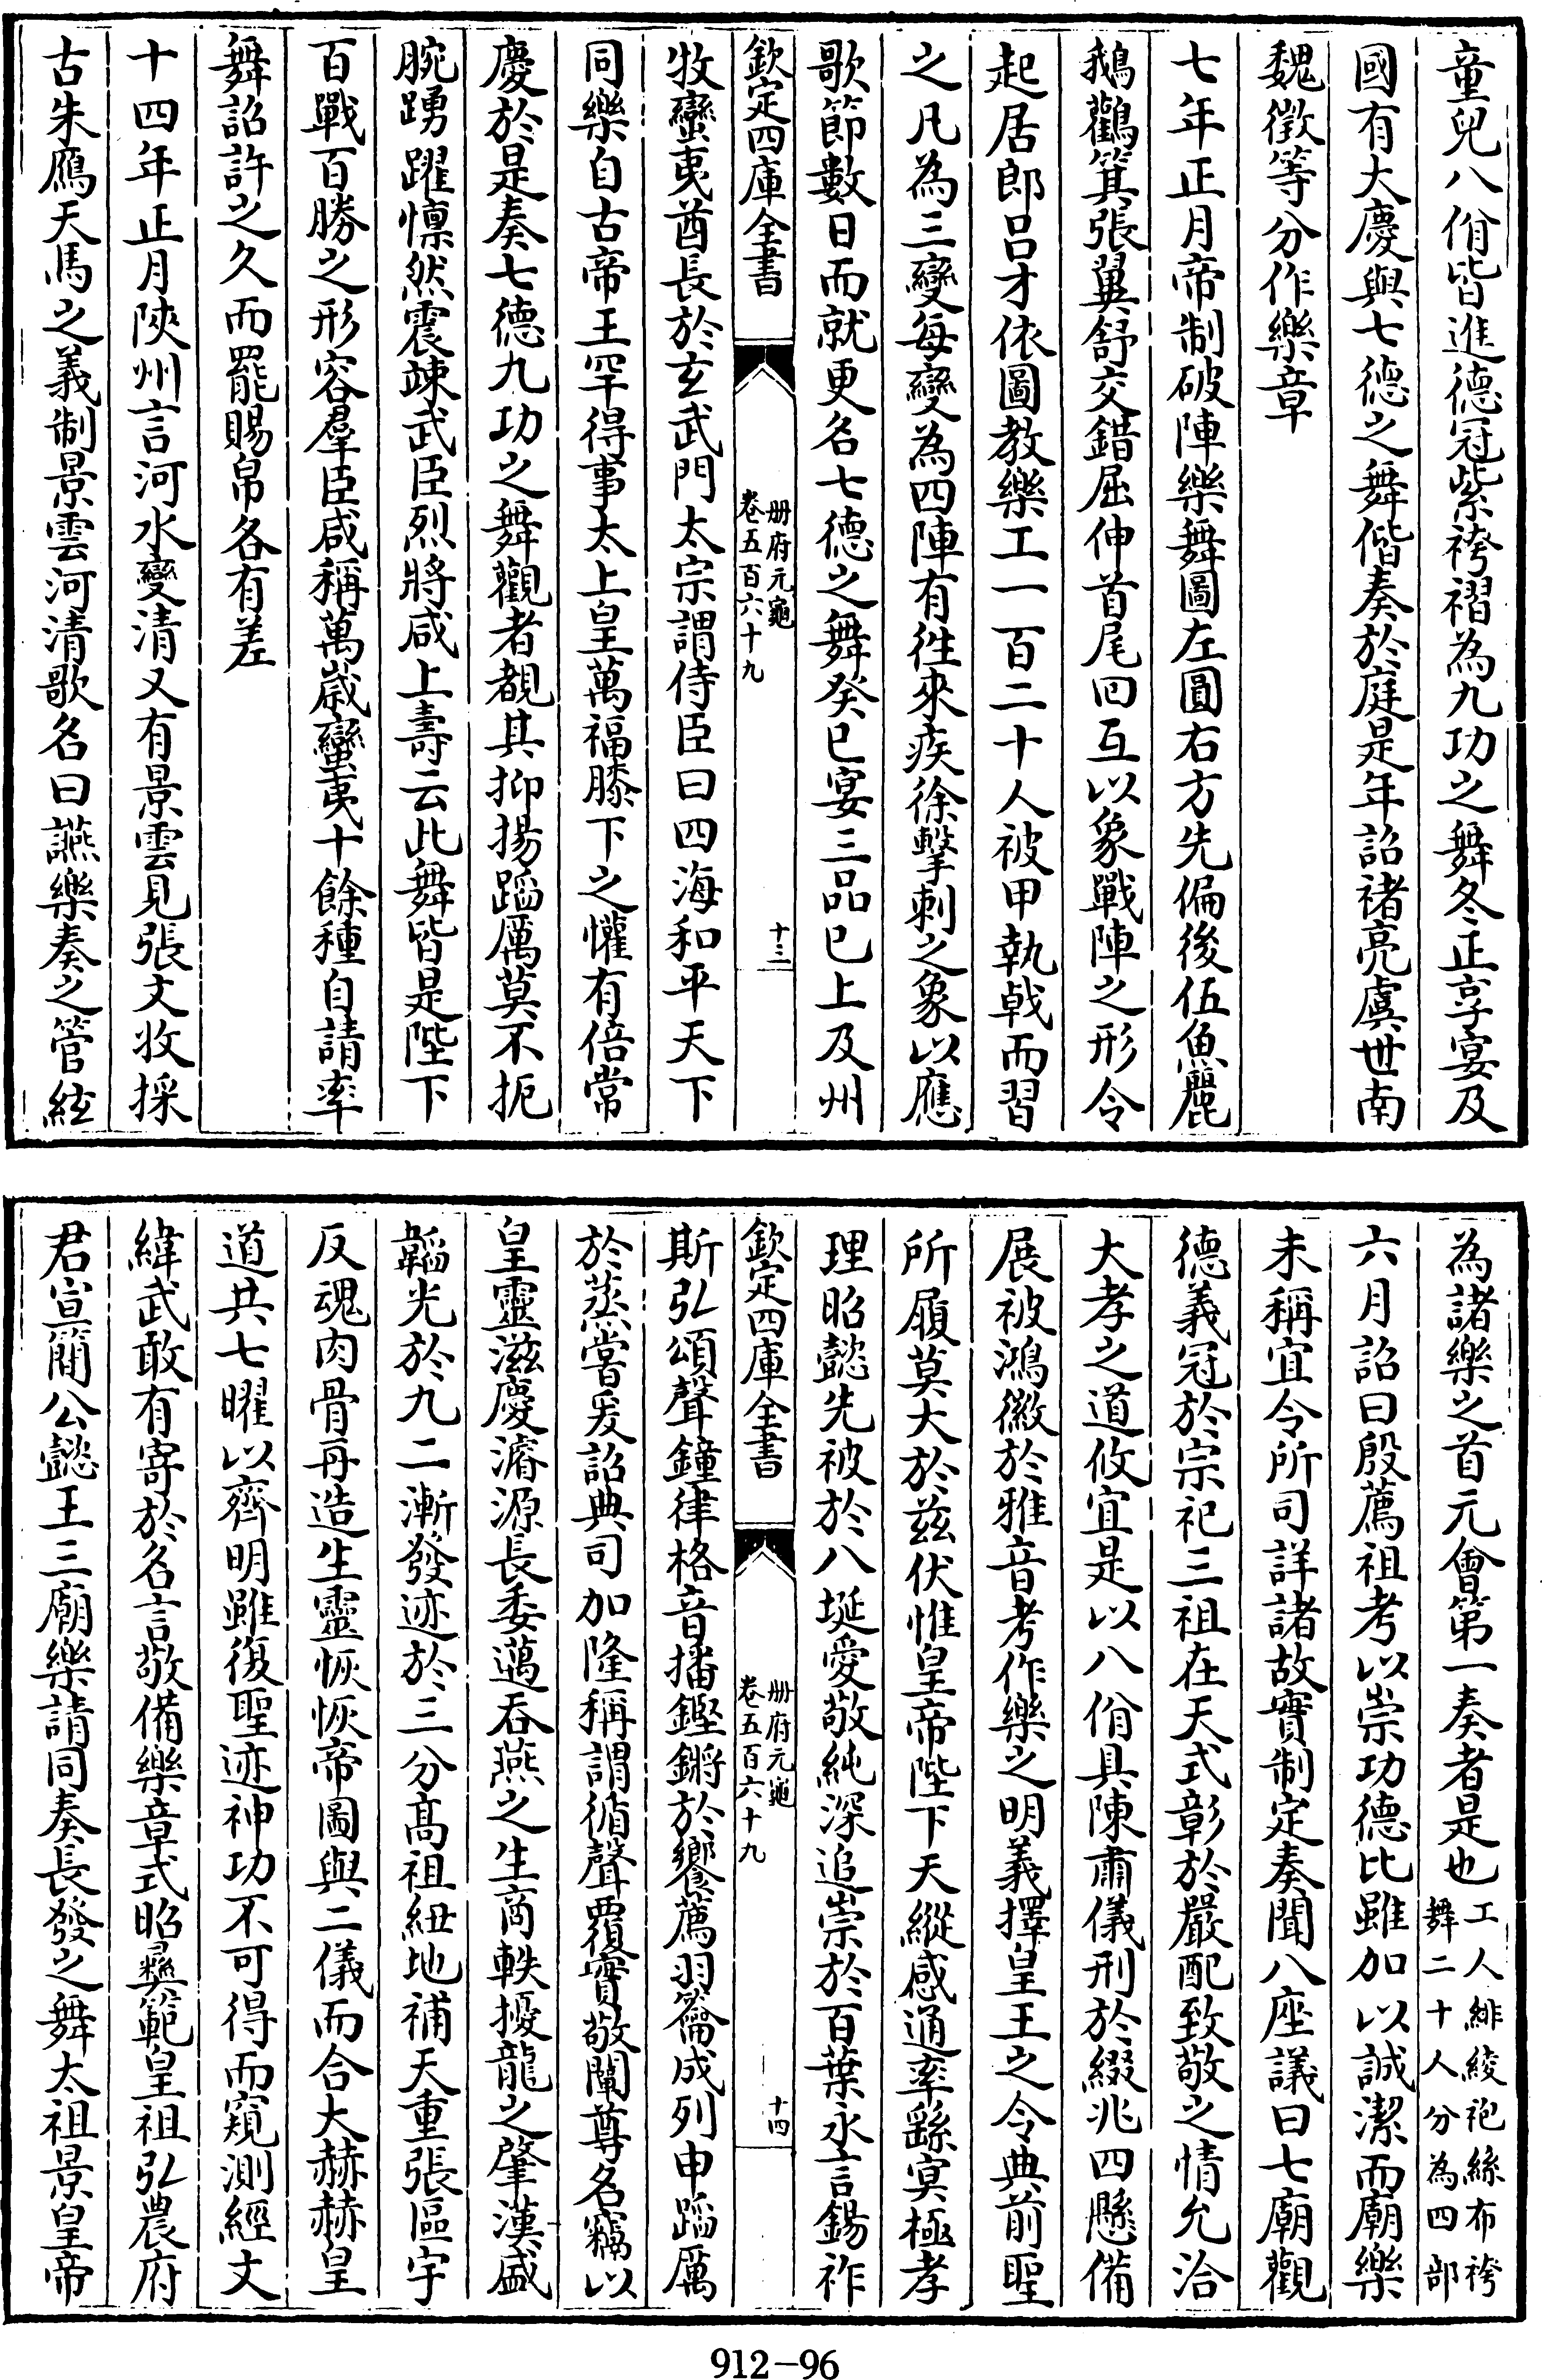 童兒八佾皆進德冠紫袴褶為九功之舞冬正享宴及
國有大慶與七德之舞偕奏於庭是年詔禇亮虞世南
魏徵等分作樂章
七年正月帝制破陣樂舞圖左圓右方先偏後伍魚麗
鵝鸛箕張翼舒交錯屈伸首尾回互以象戰陣之形令
起居郎吕才依圖教樂工一百二十人被甲執戟而習
之凡為三變每變為四陣有徃來疾徐擊刺之象以應
歌節數日而就更名七德之舞癸巳宴三品已上及州
欽定四庫全書
册府元龜
卷五百六十九
十三
牧蠻夷酋長於玄武門太宗謂侍臣曰四海和平天下
同樂自古帝王罕得事太上皇萬福膝下之懽有倍常
慶於是奏七德九功之舞觀者覩其抑揚蹈厲莫不扼
腕踴躍懔然震竦武臣烈將咸上壽云此舞皆是陛下
百戰百勝之形容羣臣咸稱萬嵗蠻夷十餘種自請率
舞詔許之久而罷賜帛各有差
十四年正月陜州言河水變清又有景雲見張文收採
古朱鴈天馬之義制景雲河清歌名曰讌樂奏之管絃
為諸樂之首元會第一奏者是也
工人緋綾袍絲布袴
舞二十人分為四部
六月詔曰殷薦祖考以崇功德比雖加以誠潔而廟樂
未稱宜令所司詳諸故實制定奏聞八座議曰七廟觀
德義冠於宗祀三祖在天式彰於嚴配致敬之情允洽
大孝之道攸宜是以八佾具陳肅儀刑於綴兆四懸備
展被鴻徽於雅音考作樂之明義擇皇王之令典前聖
所履莫大於兹伏惟皇帝陛下天縱感通率繇㝠極孝
理昭懿先被於八埏愛敬純深追崇於百葉永言錫祚
欽定四庫全書
册府元龜
卷五百六十九
十四
斯弘頌聲鐘律格音播鏗鏘於饗薦羽籥成列申蹈厲
於蒸嘗爰詔典司加隆稱謂循聲覆實敬闡尊名竊以
皇靈滋慶濬源長委邁吞燕之生商軼擾龍之肇漢盛
韜光於九二漸發迹於三分髙祖紐地補天重張區宇
反魂肉骨再造生靈恢恢帝圖與二儀而合大赫赫皇
道共七曜以齊明雖復聖迹神功不可得而窺測經文
緯武敢有寄於名言敬備樂章式昭彞範皇祖弘農府
君宣簡公懿王三廟樂請同奏長發之舞太祖景皇帝
912-96